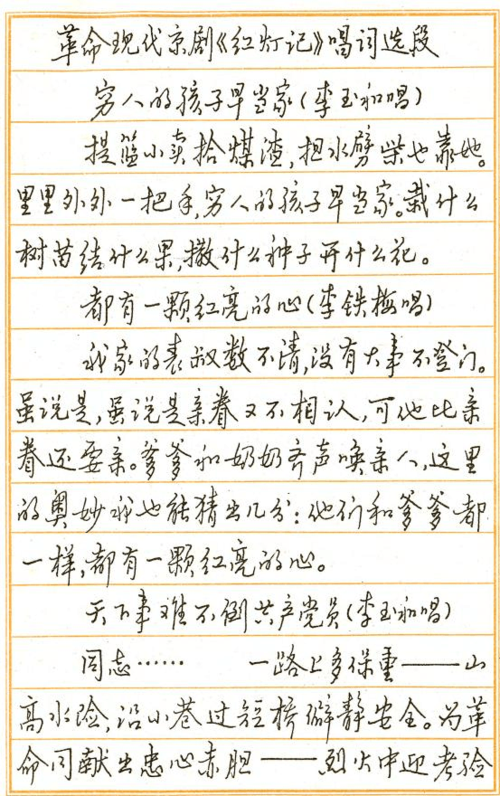 革命现代京剧《红灯记》唱词选段
穷人的孩子早当家(李玉和唱)
提篮小卖拾煤渣,担水劈柴也靠她。
里里外外一把手,穷人的孩子早当家。栽什么
树苗结什么果,撒什么种子开什么花。
都有一颗红亮的心(李铁梅唱)
我家的表叔数不清,没有大事不登门。
虽说是,虽说是亲眷又不相认,可他比亲
眷还要亲。爹爹和奶奶齐声唤亲人,这里
的奥妙我也能猜出几分:他们和爹爹都
一样,都有一颗红亮的心。
天下事难不倒共产党员(李玉和唱)
同志…… 一路上多保重——山
高水险,沿小巷过短桥僻静安全。为革
命同献出忠心赤胆——烈火中迎考验